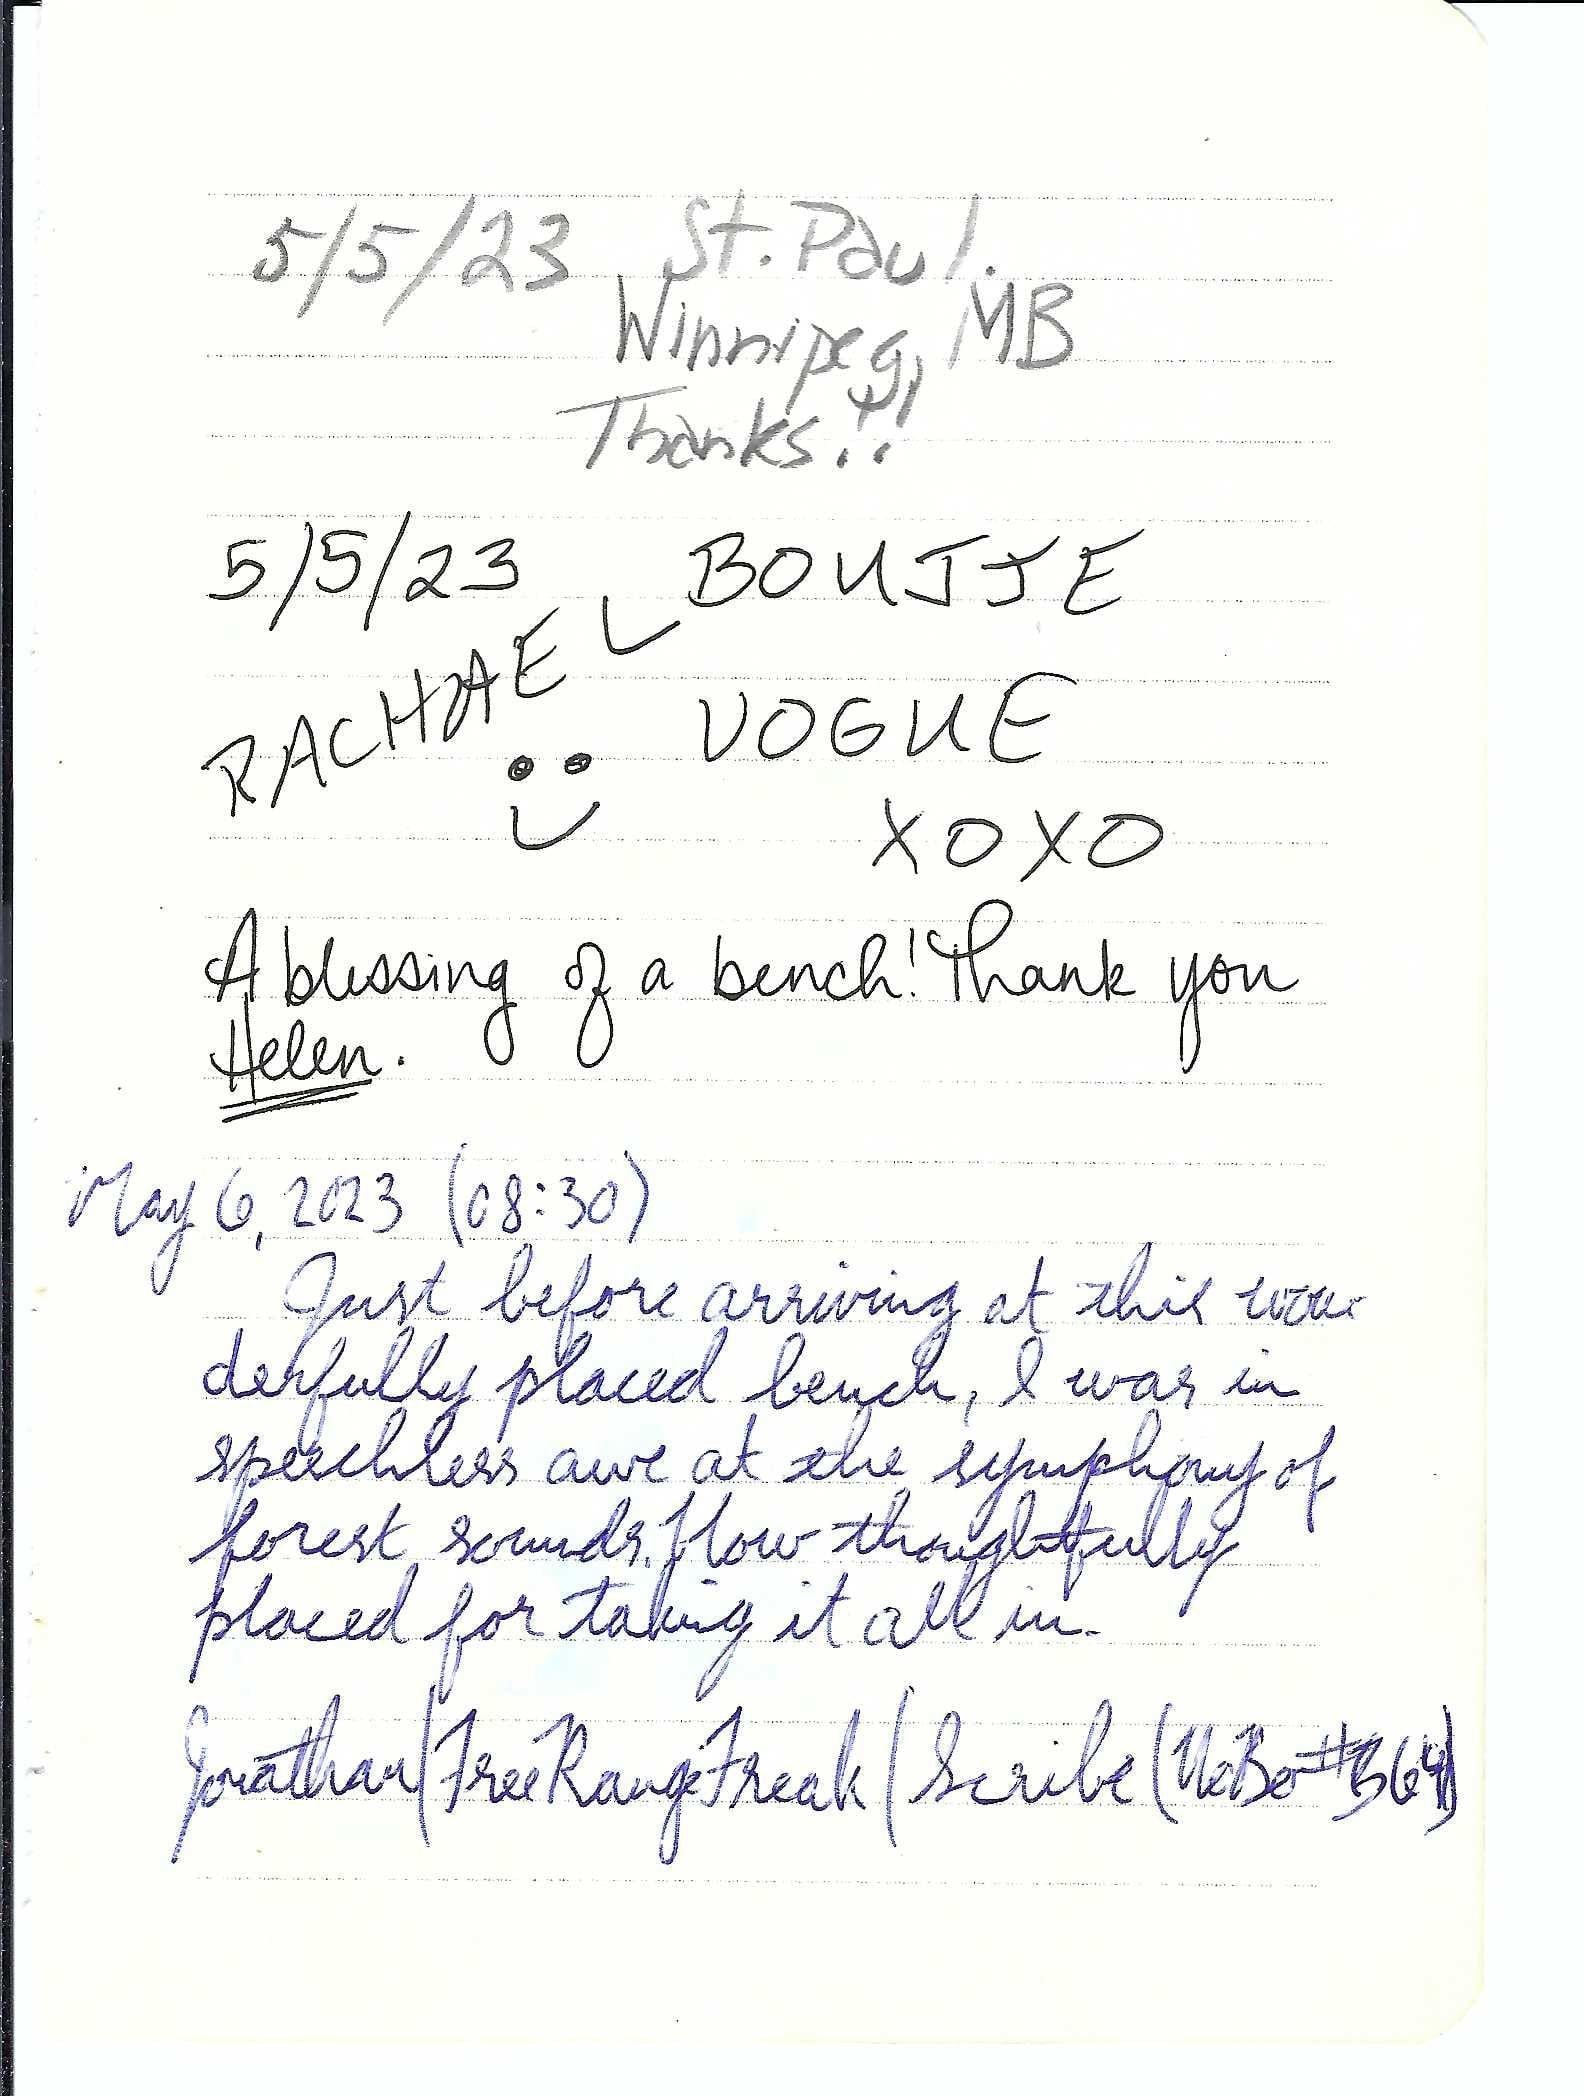 5/5/23 St. Paul.
Winnipeg, MB
Thanks!!
5/5/23 BOUJJE
RACHHAEL VOGUE
XOXO
A blessing of a bench! Thank you
Helen.
May 6, 2023 (08:30)
Just before arriving at this won-
derfully placed bench, I was in
speechless awe at the symphony of
forest sounds. How thoughtfully
placed for taking it all in.
Jonathan/FreeRangeFreak/Scribe (NoBo #364)